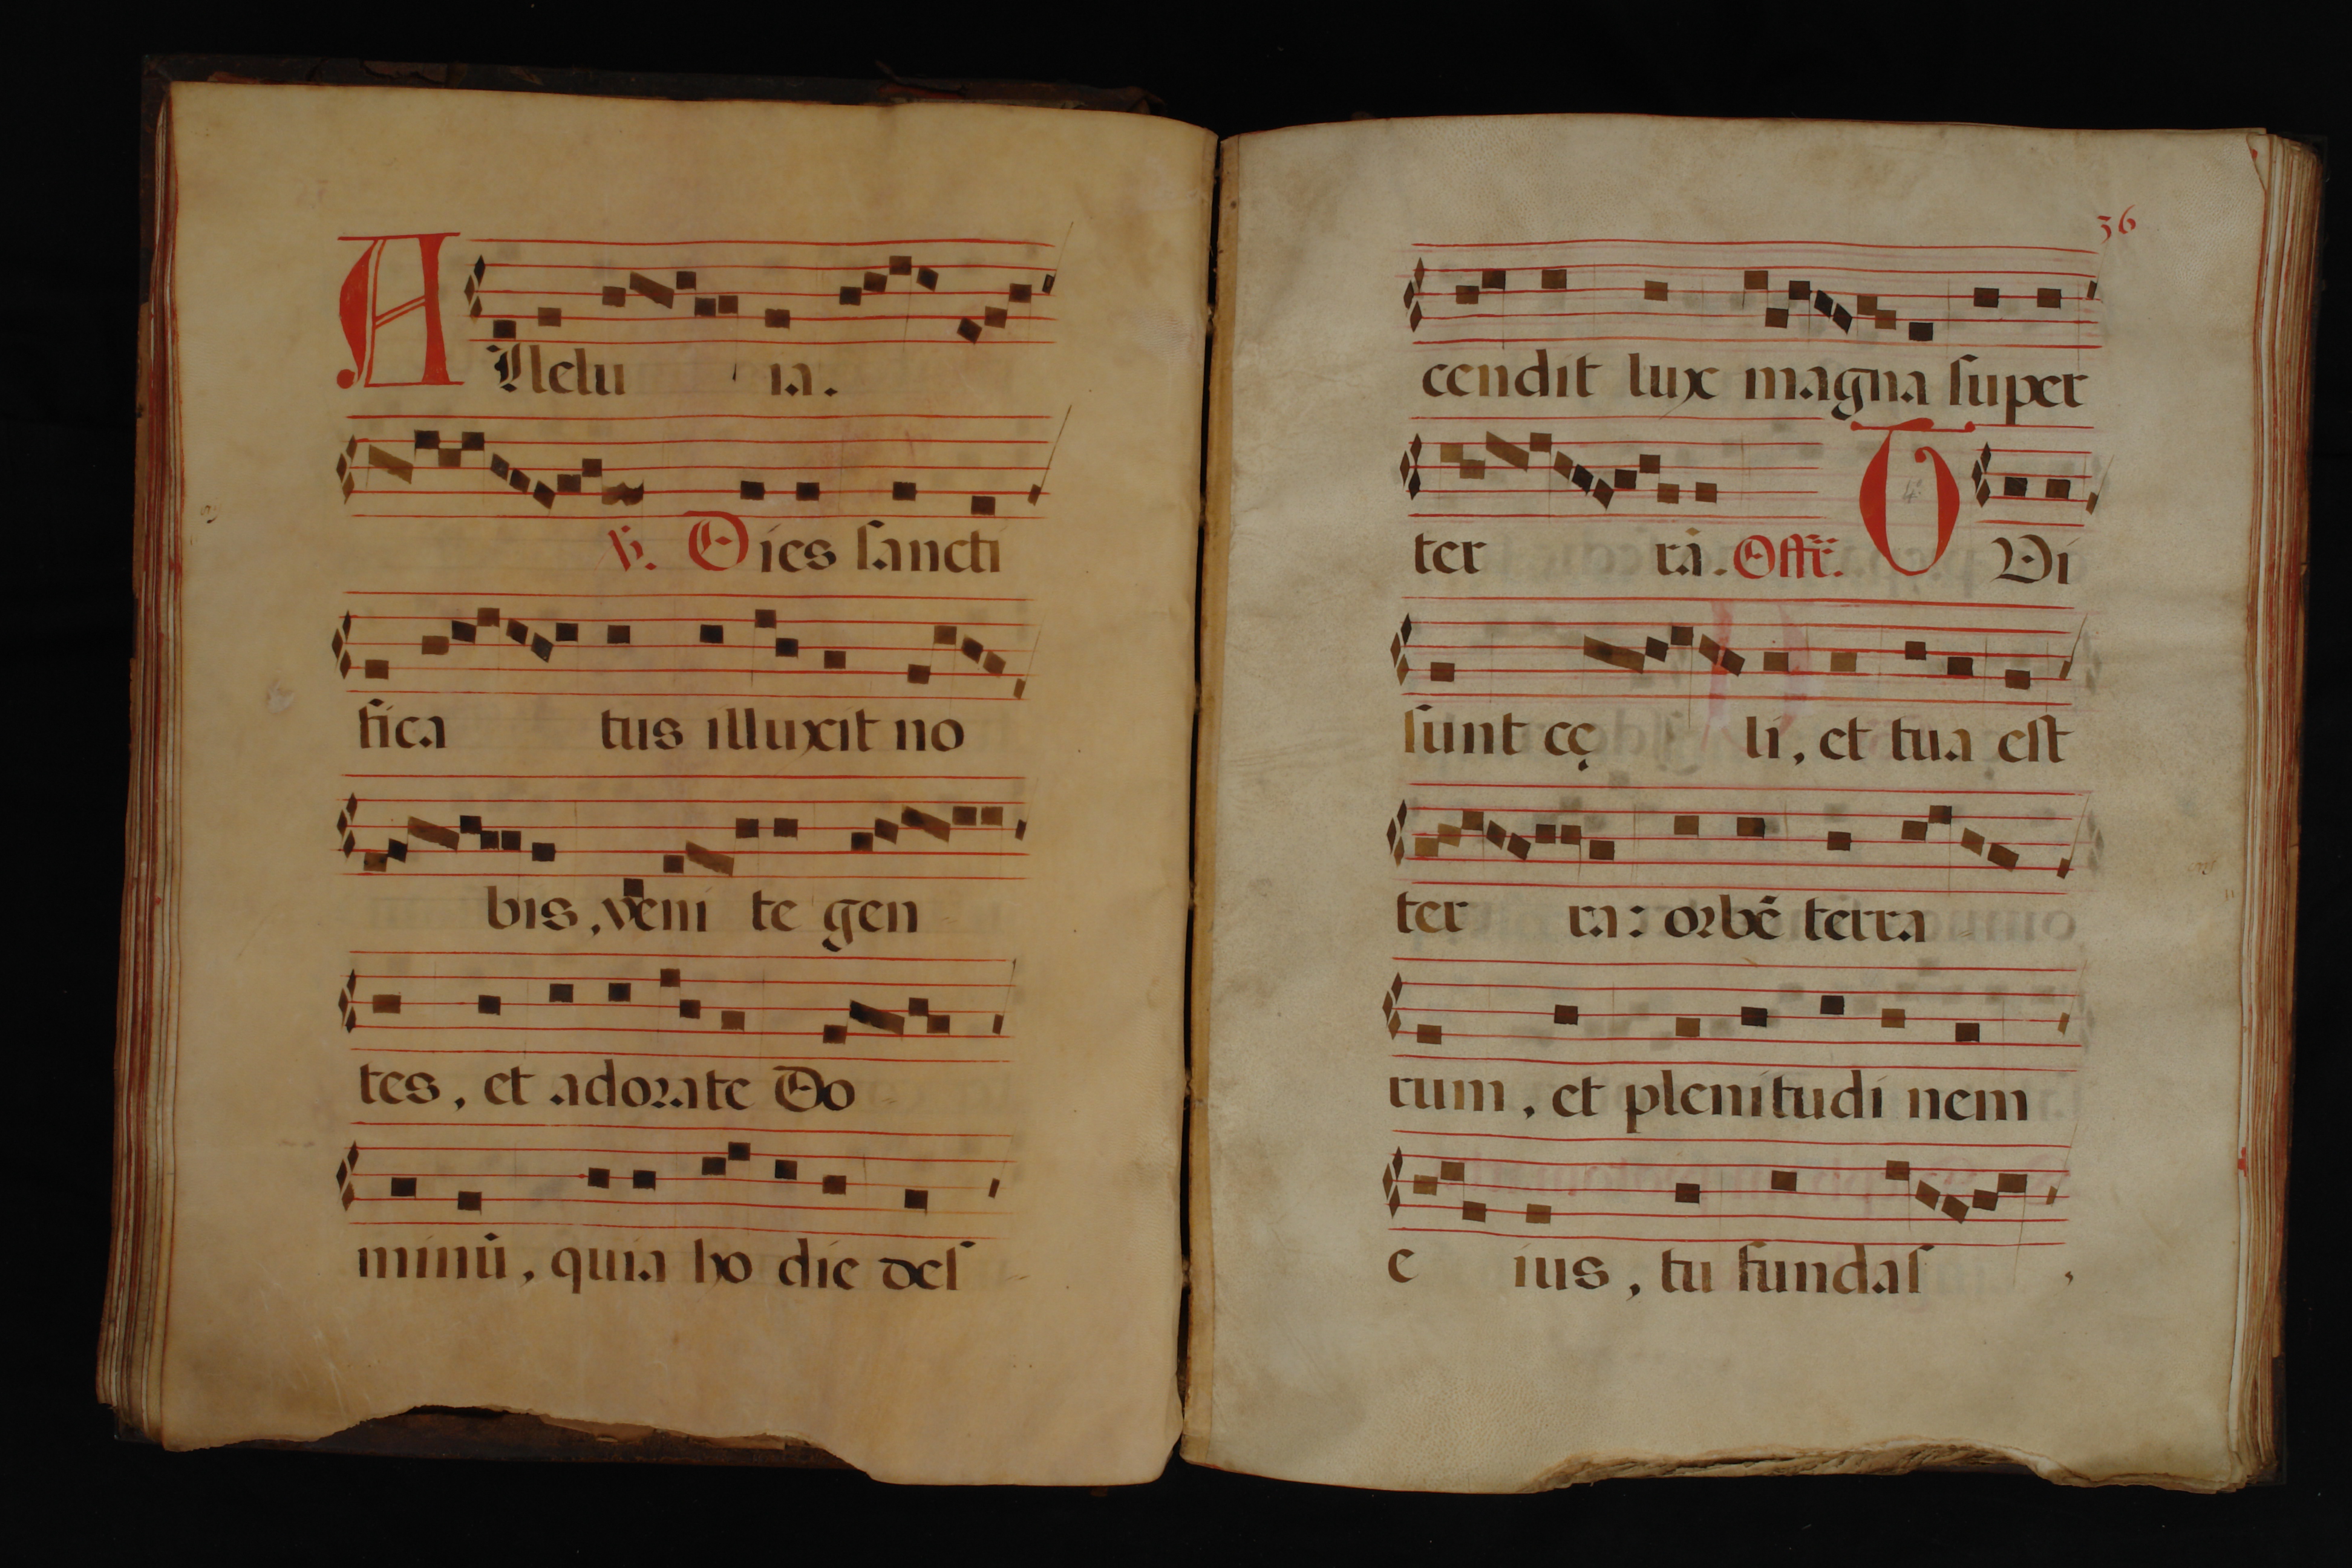 Allelu ia.
℣. Dies sancti
fica tus illuxit no
bis, veni te gen
tes, et adorate Do
minū, quia ho die des
36
cendit lux magna super
ter rā. Offr. T Vi
sunt cę li, et tua est
ter ra: orbē terra
rum, et plenitudi nem
e ius, tu fundas